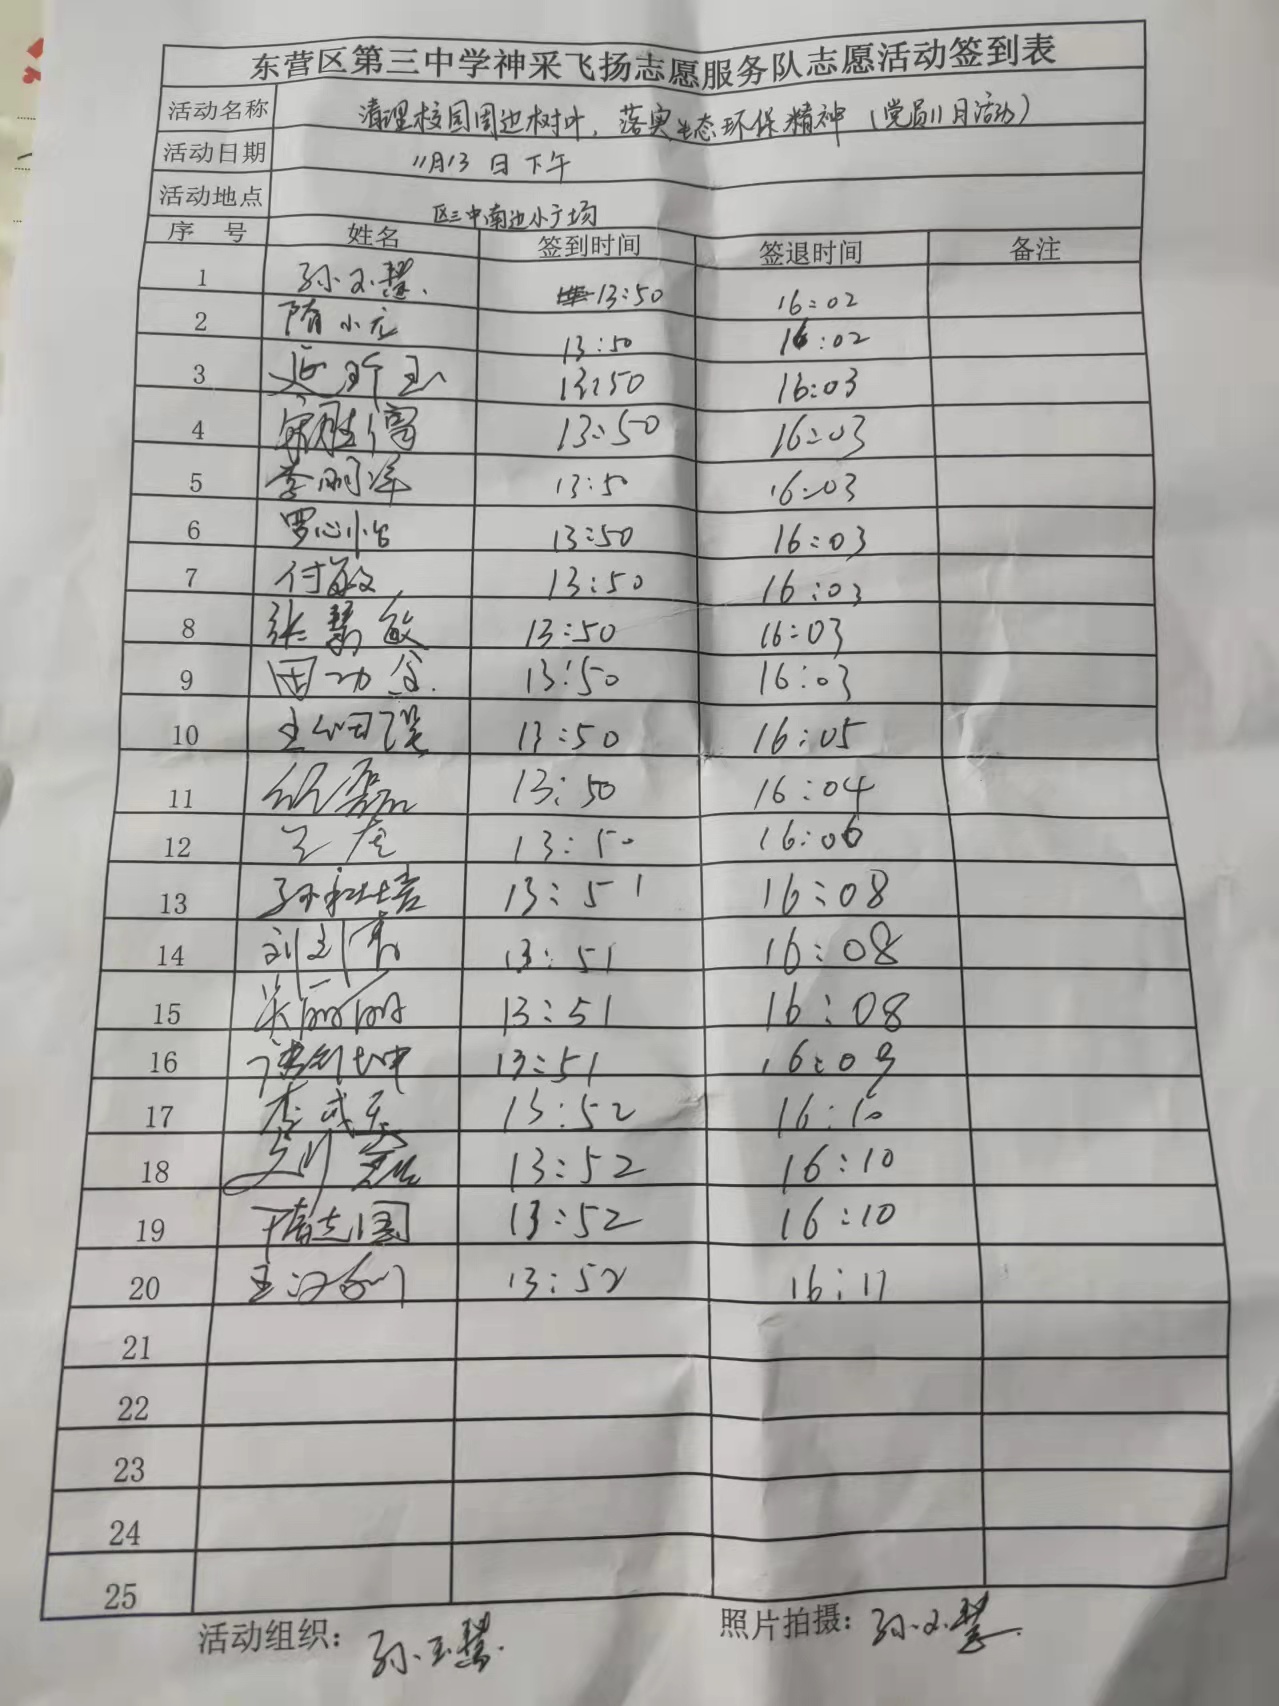 东营区第三中学神采飞扬志愿服务队志愿活动签到表
活动名称 清理校园周边树叶，落实生态环保精神（党员11月活动）
活动日期 11月13日下午
活动地点 区三中南边小广场
序 号 姓名 签到时间 签退时间 备注
1 孙玉慧 13:50 16:02
2 隋小 13:50 16:02
3 13:50 16:03
4 13:50 16:03
5 李丽萍 13:50 16:03
6 罗心怡 13:50 16:03
7 付敏 13:50 16:03
8 张慧敏 13:50 16:03
9 田功 13:50 16:03
10 13:50 16:05
11 磊 13:50 16:04
12 13:50 16:06
13 孙 培 13:51 16:08
14 刘 13:51 16:08
15 吴丽丽 13:51 16:08
16 13:51 16:09
17 李成 13:52 16:10
18 刘磊 13:52 16:10
19 志国 13:52 16:10
20 王汉 13:52 16:11
21
22
23
24
25
活动组织：孙玉慧 照片拍摄：孙玉慧